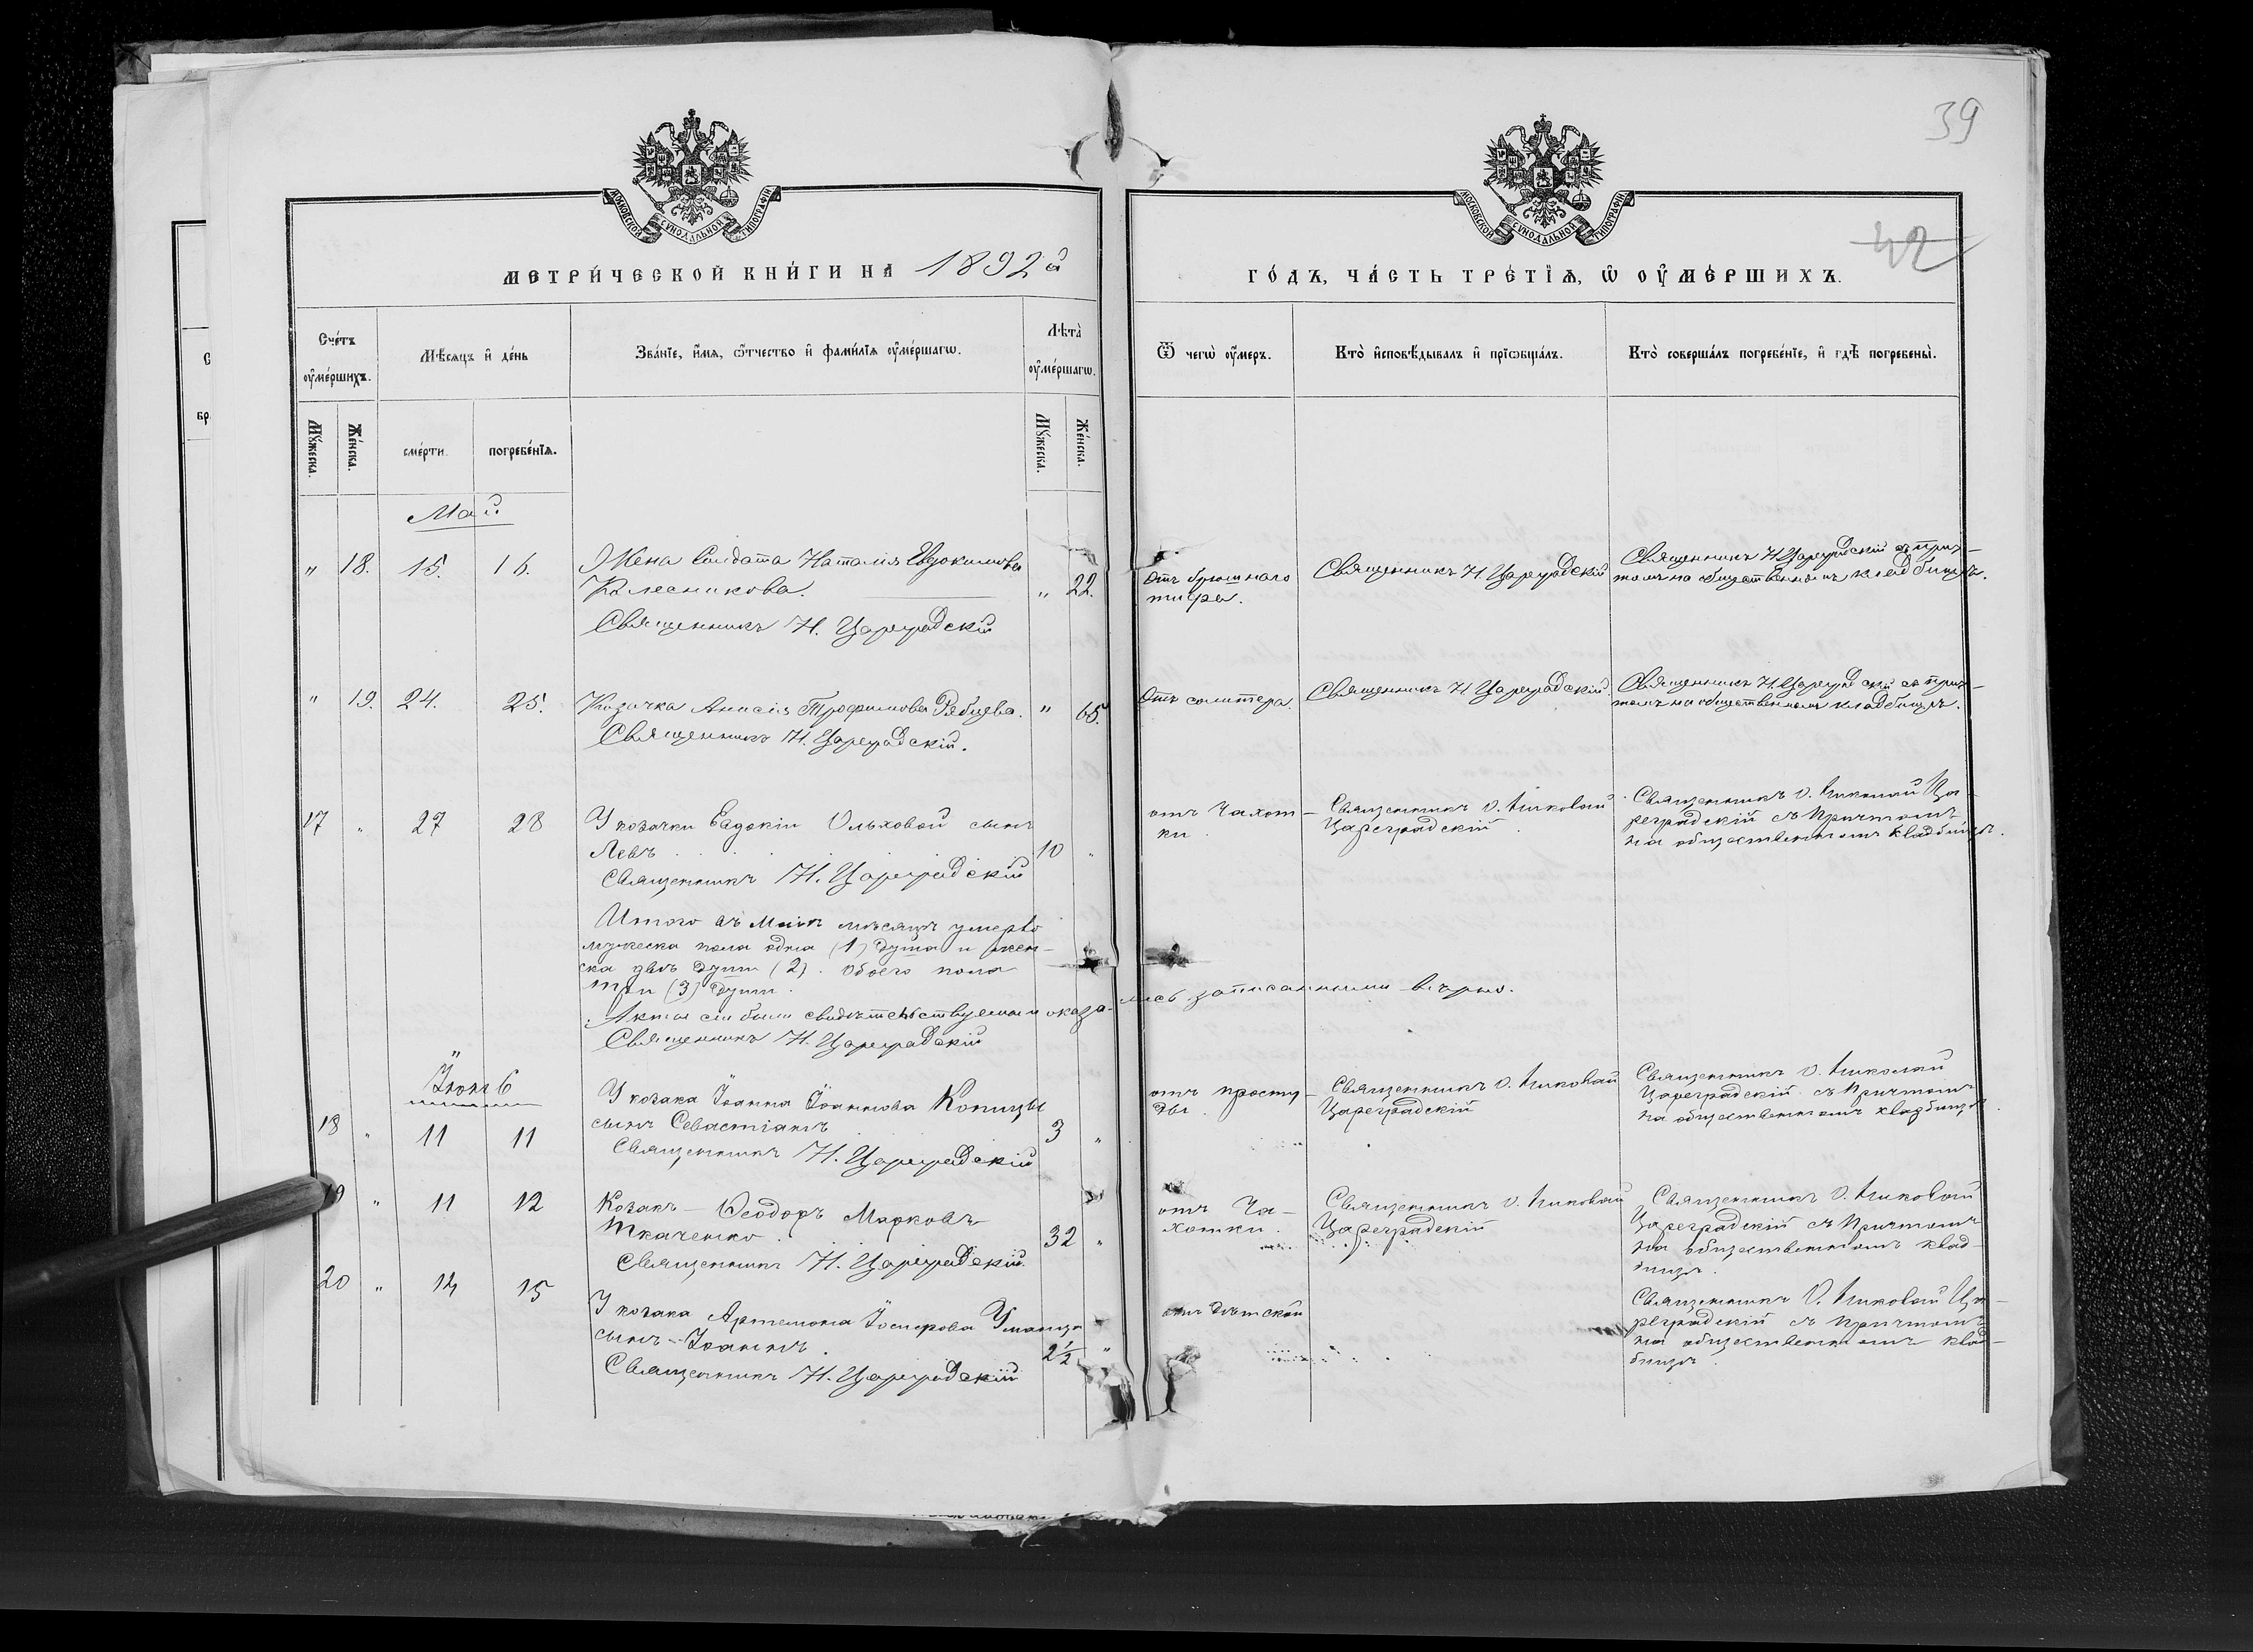 39
42
МОСКОВСКОЙ СУНОДАЛЬНОЙ ТИПОГРАФІИ
МОСКОВСКОЙ СУНОДАЛЬНОЙ ТИПОГРАФІИ
МЕТРИ́ЧЕСКОЙ КНИ́ГИ НА 1892й
ГО́ДЪ, ЧА́СТЬ ТРЕ́ТЇѦ, Ѡ ОУ҆МЕ́РШИХЪ.
Сче́тъ оу҆ме́ршихъ.
Мѣ́сѧцъ и҆ де́нь
Зва́нїе, и҆́мѧ, ѻ҆́тчество и҆ фами́лїѧ оу҆ме́ршагѡ.
Лѣта̀ оу҆ме́ршагѡ.
Ѿ чегѡ̀ оу҆́меръ.
Кто̀ и҆сповѣ́дывалъ и҆ прїѡбща́лъ.
Кто̀ соверша́лъ погребе́нїе, и҆ гдѣ̀ погребены̀.
Мꙋ́жеска.
Же́нска.
сме́рти.
погребе́нїѧ.
Мꙋ́жеска.
Же́нска.
Май
„ 18. 15. 16. Жена Солдата Наталія Евдокимова
Колесникова. „ 22.
Священникъ Н. Цареградскій
Отъ брюшнаго
тифа.
Священникъ Н Цареградскій
Священникъ Н Цареградскій съ прич-
томъ на общественномъ кладбищѣ.
„ 19. 24. 25. Козачка Анисія Трофимова Рябцева. „ 65.
Священникъ Н. Цареградскій.
Отъ солитера.
Священникъ Н Цареградскій.
Священникъ Н. Цареградскій съ прич-
томъ на общественномъ кладбищѣ.
17 „ 27 28 У козачки Евдокіи Ольховой сынъ
Левъ 10 „
Священникъ Н. Цареградскій
отъ Чахот-
ки.
Священникъ О. Николай
Цареградскій.
Священникъ О. Николай Ца-
реградскій съ Причтомъ
на общественномъ кладбищѣ.
Итого въ Маѣ мѣсяцѣ умерло
мужеска пола одна (1) душа и жен-
ска двѣ души (2). обоего пола
три (3) души.
Акты сіи были свидѣтельствуемы и оказа-лись записанными вѣрно.
Священникъ Н. Цареградскій
Іюнь
У козака Іоанна Іоаннова Копицы
18 „ 11 11 сынъ Севастіанъ 3 „
Священникъ Н. Цареградскій
отъ просту-
ды.
Священникъ О. Николай
Цареградскій
Священникъ О. Николай
Цареградскій съ Причтомъ
на общественномъ кладбищѣ.
19 „ 11 12 Козакъ - Ѳеодоръ Марковъ
Ткаченко. 32 „
Священникъ Н. Цареградскій.
отъ Ча-
хотки.
Священникъ О. Николай
Цареградскій
Священникъ О. Николай
Цареградскій съ Причтомъ
на общественномъ клад-
бищѣ.
20 „ 14 15 У козака Артемона Іосифова Уманца
сынъ - Іоаннъ. 2½ „
Священникъ Н. Цареградскій
отъ дѣтской
Священникъ О. Николай Ца-
реградскій съ Причтомъ
на общественномъ клад-
бищѣ.